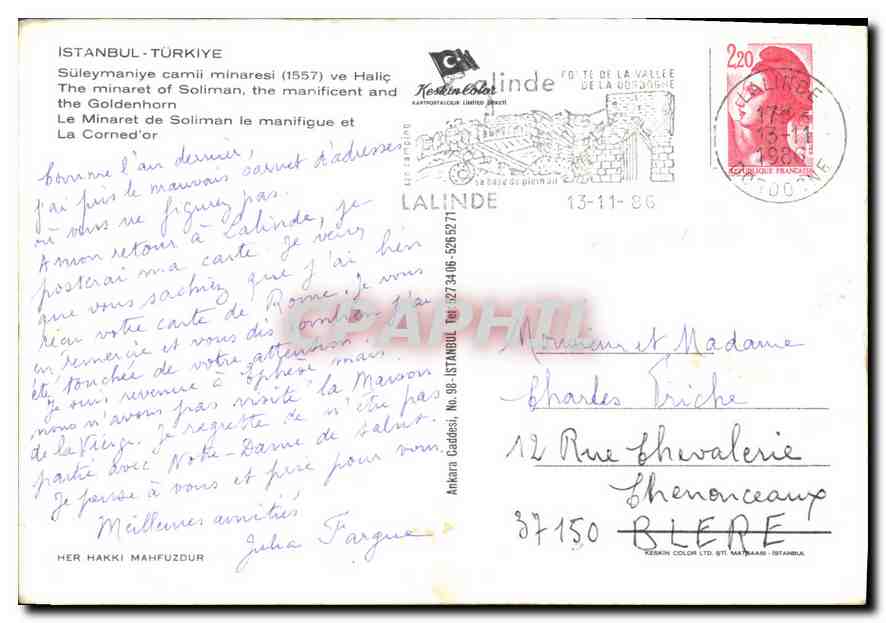 İSTANBUL - TÜRKİYE
Süleymaniye camii minaresi (1557) ve Haliç
The minaret of Soliman, the manificent and
the Goldenhorn
Le Minaret de Soliman le manifigue et
La Corned'or
Keskin Color
KARTPOSTALCILIK LIMITED ŞİRKETİ
Lalinde
PORTE DE LA VALLÉE
DE LA DORDOGNE
son camping
sa base de plein air
LALINDE 13-11-86
2,20
REPUBLIQUE FRANÇAISE
LALINDE
17H
13-11
1986
DORDOGNE
Comme l'an dernier,
j'ai pris le mauvais carnet d'adresses
où vous ne figurez pas.
A mon retour à Lalinde, je
posterai ma carte. Je veux
que vous sachiez que j'ai bien
reçu votre carte de Rome. Je vous
en remercie et vous dis combien j'ai
été touchée de votre attention.
Je suis revenue à Ephèse mais
nous n'avons pas visité la Maison
de la Vierge. Je regrette de n'être pas
partie avec Notre-Dame de Salut.
Je pense à vous et prie pour vous.
Meilleures amitiés
Julia Fargue
HER HAKKI MAHFUZDUR
Ankara Caddesi, No. 98-İSTANBUL Tel: 5273406-5265271
CPAPHIL
Monsieur et Madame
Charles Triche
12 Rue Chevalerie
Chenonceaux
37150 BLERE
KESKIN COLOR LTD. ŞTI. MATBAASI - İSTANBUL